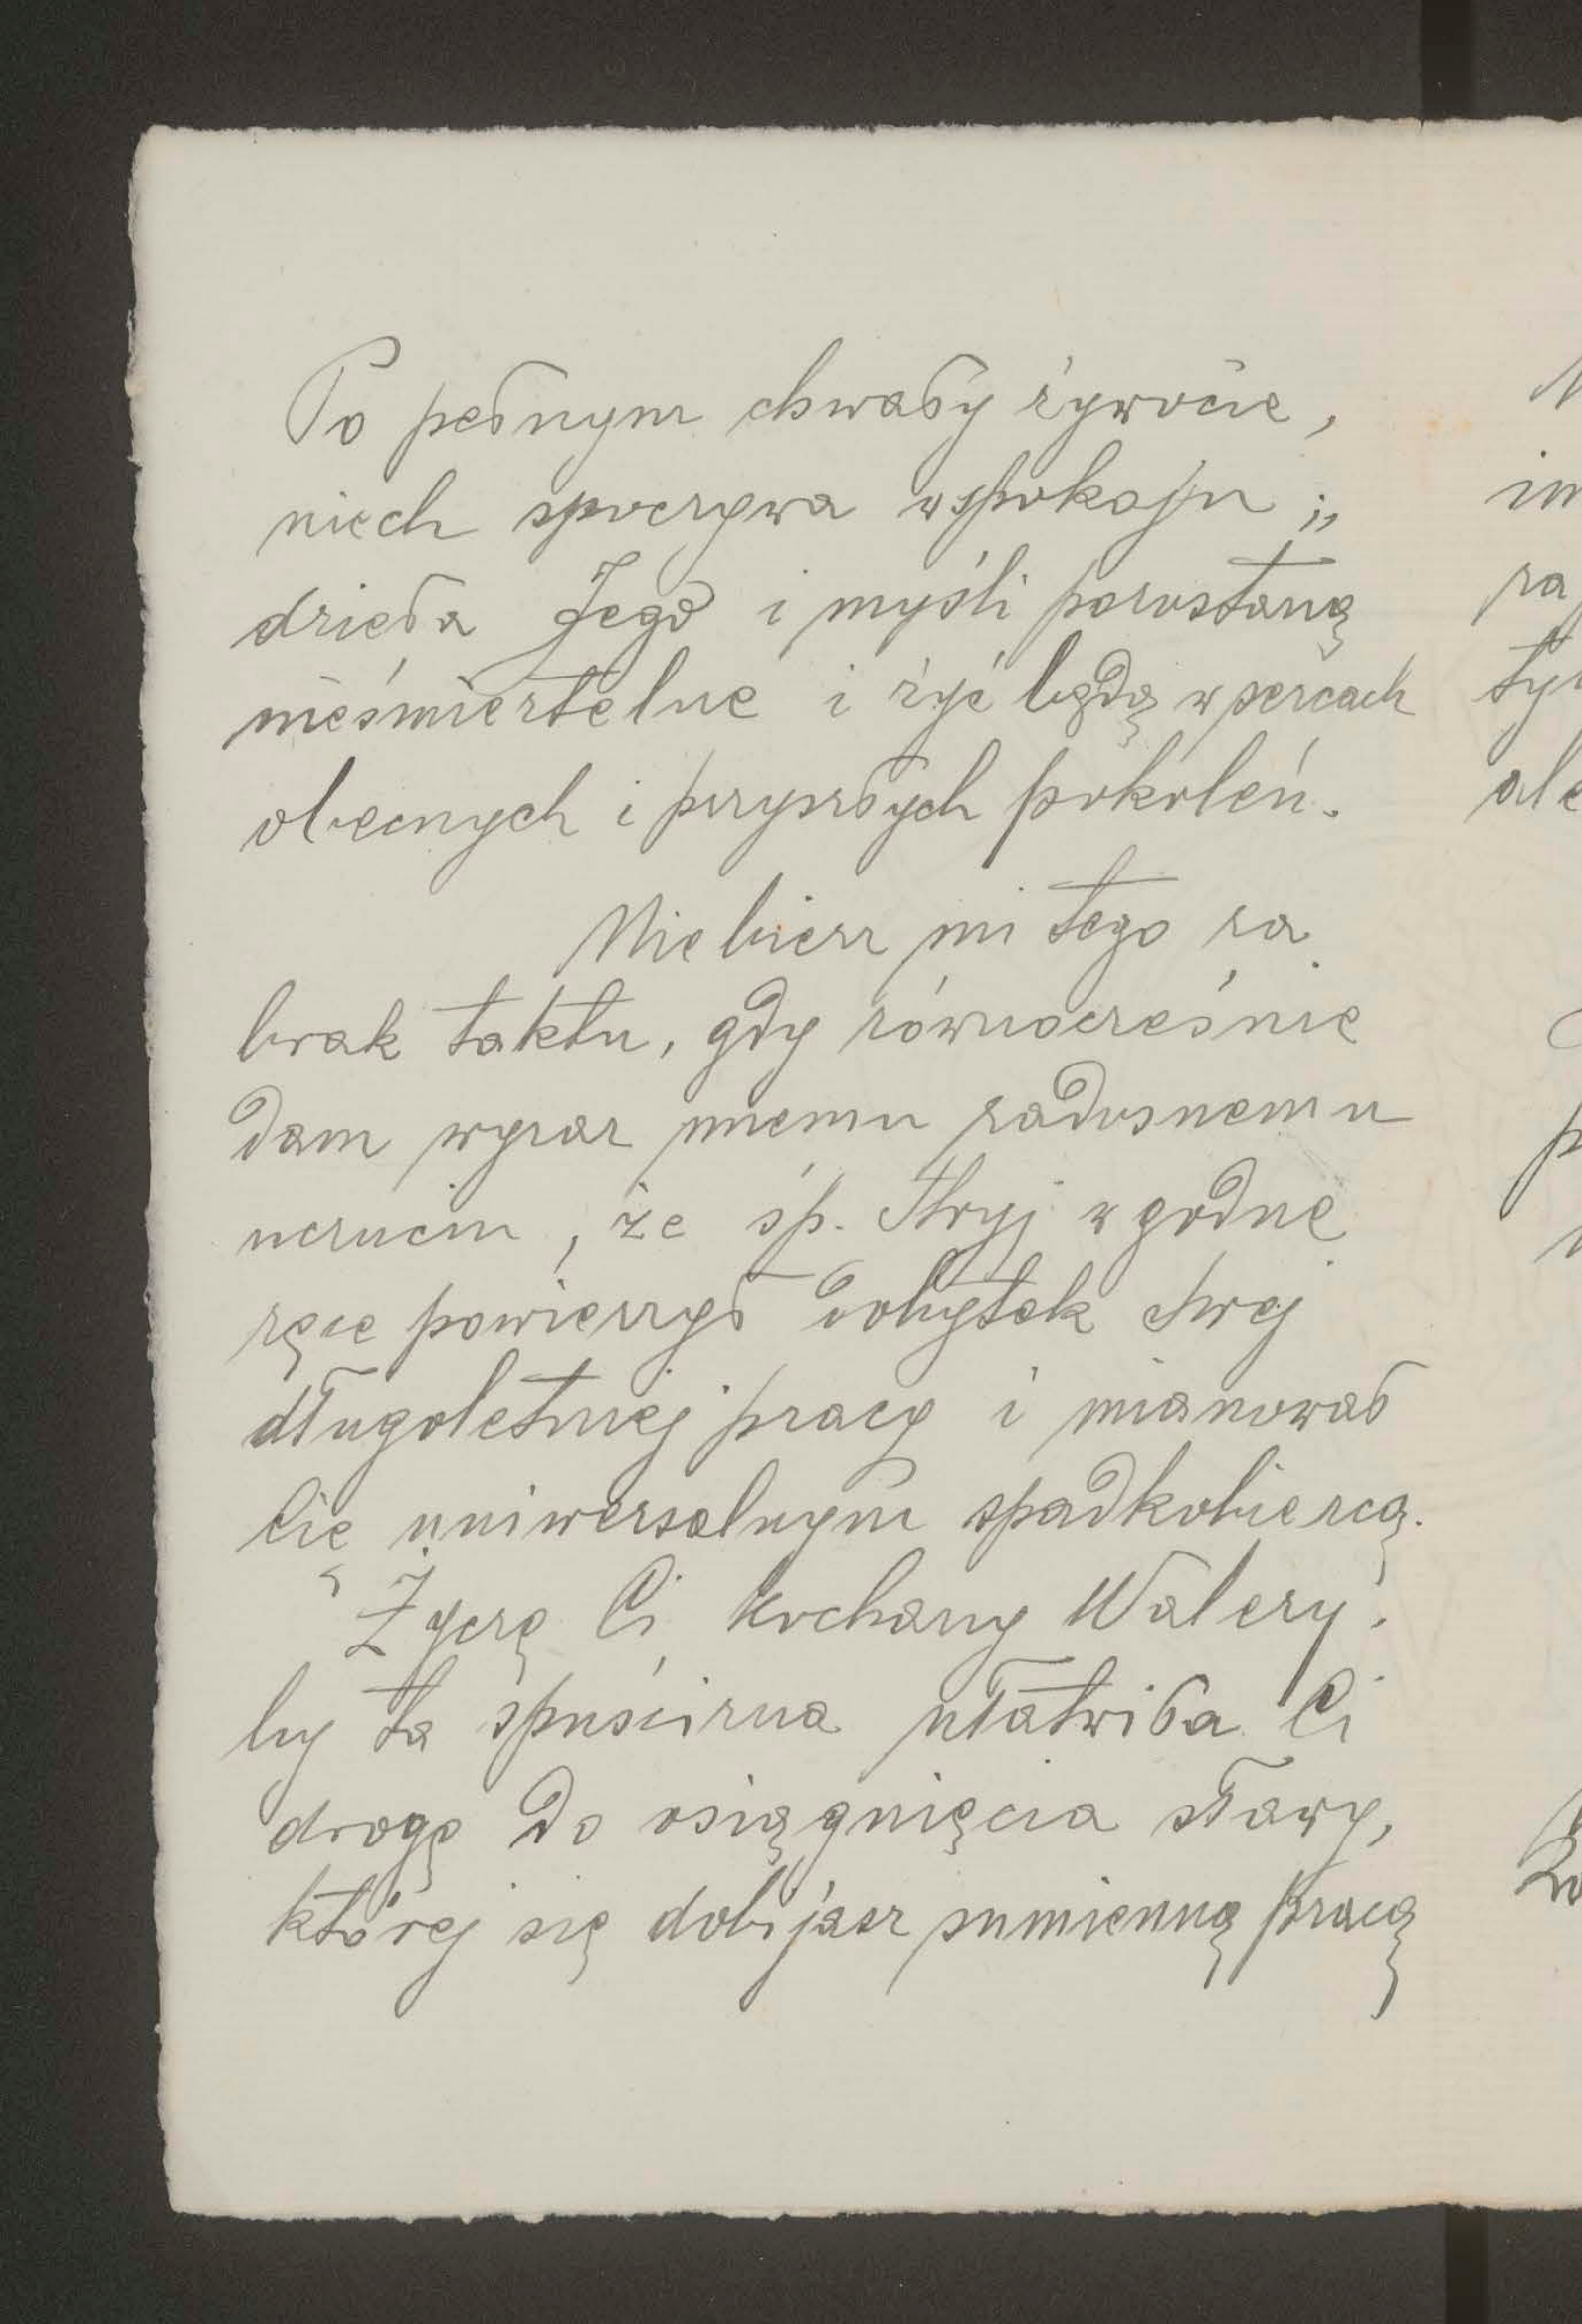 Po pełnym chwały żywocie,
niech spoczywa w spokoju ;,
dzieła Jego i myśli pozostaną
nieśmiertelne i żyć będą w sercach
obecnych i przyszłych pokoleń.
Nie bierz mi tego za
brak taktu, gdy równocześnie
dam wyraz memu radosnemu
uczuciu, że śp. Stryj w godne
ręce powierzył dobytek swej
długoletniej pracy i mianował
Cię uniwersalnym spadkobiercą.
Życzę Ci kochany Walery.
by ta spuścizna ułatwiła Ci
drogę do osiągnięcia sławy,
której się dobijasz sumienną pracą